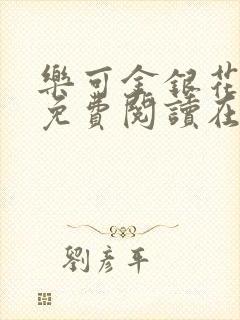 樂可金銀花
免費閱讀在
劉彥平